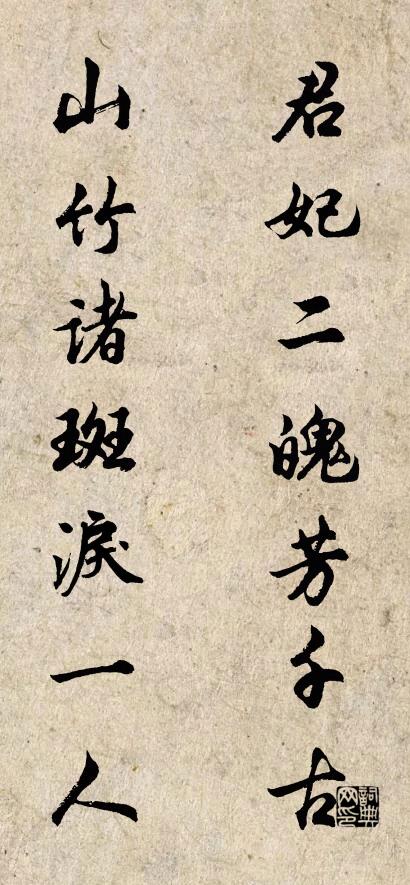 君妃二魄芳千古
山竹诸斑淚一人
詞典網印